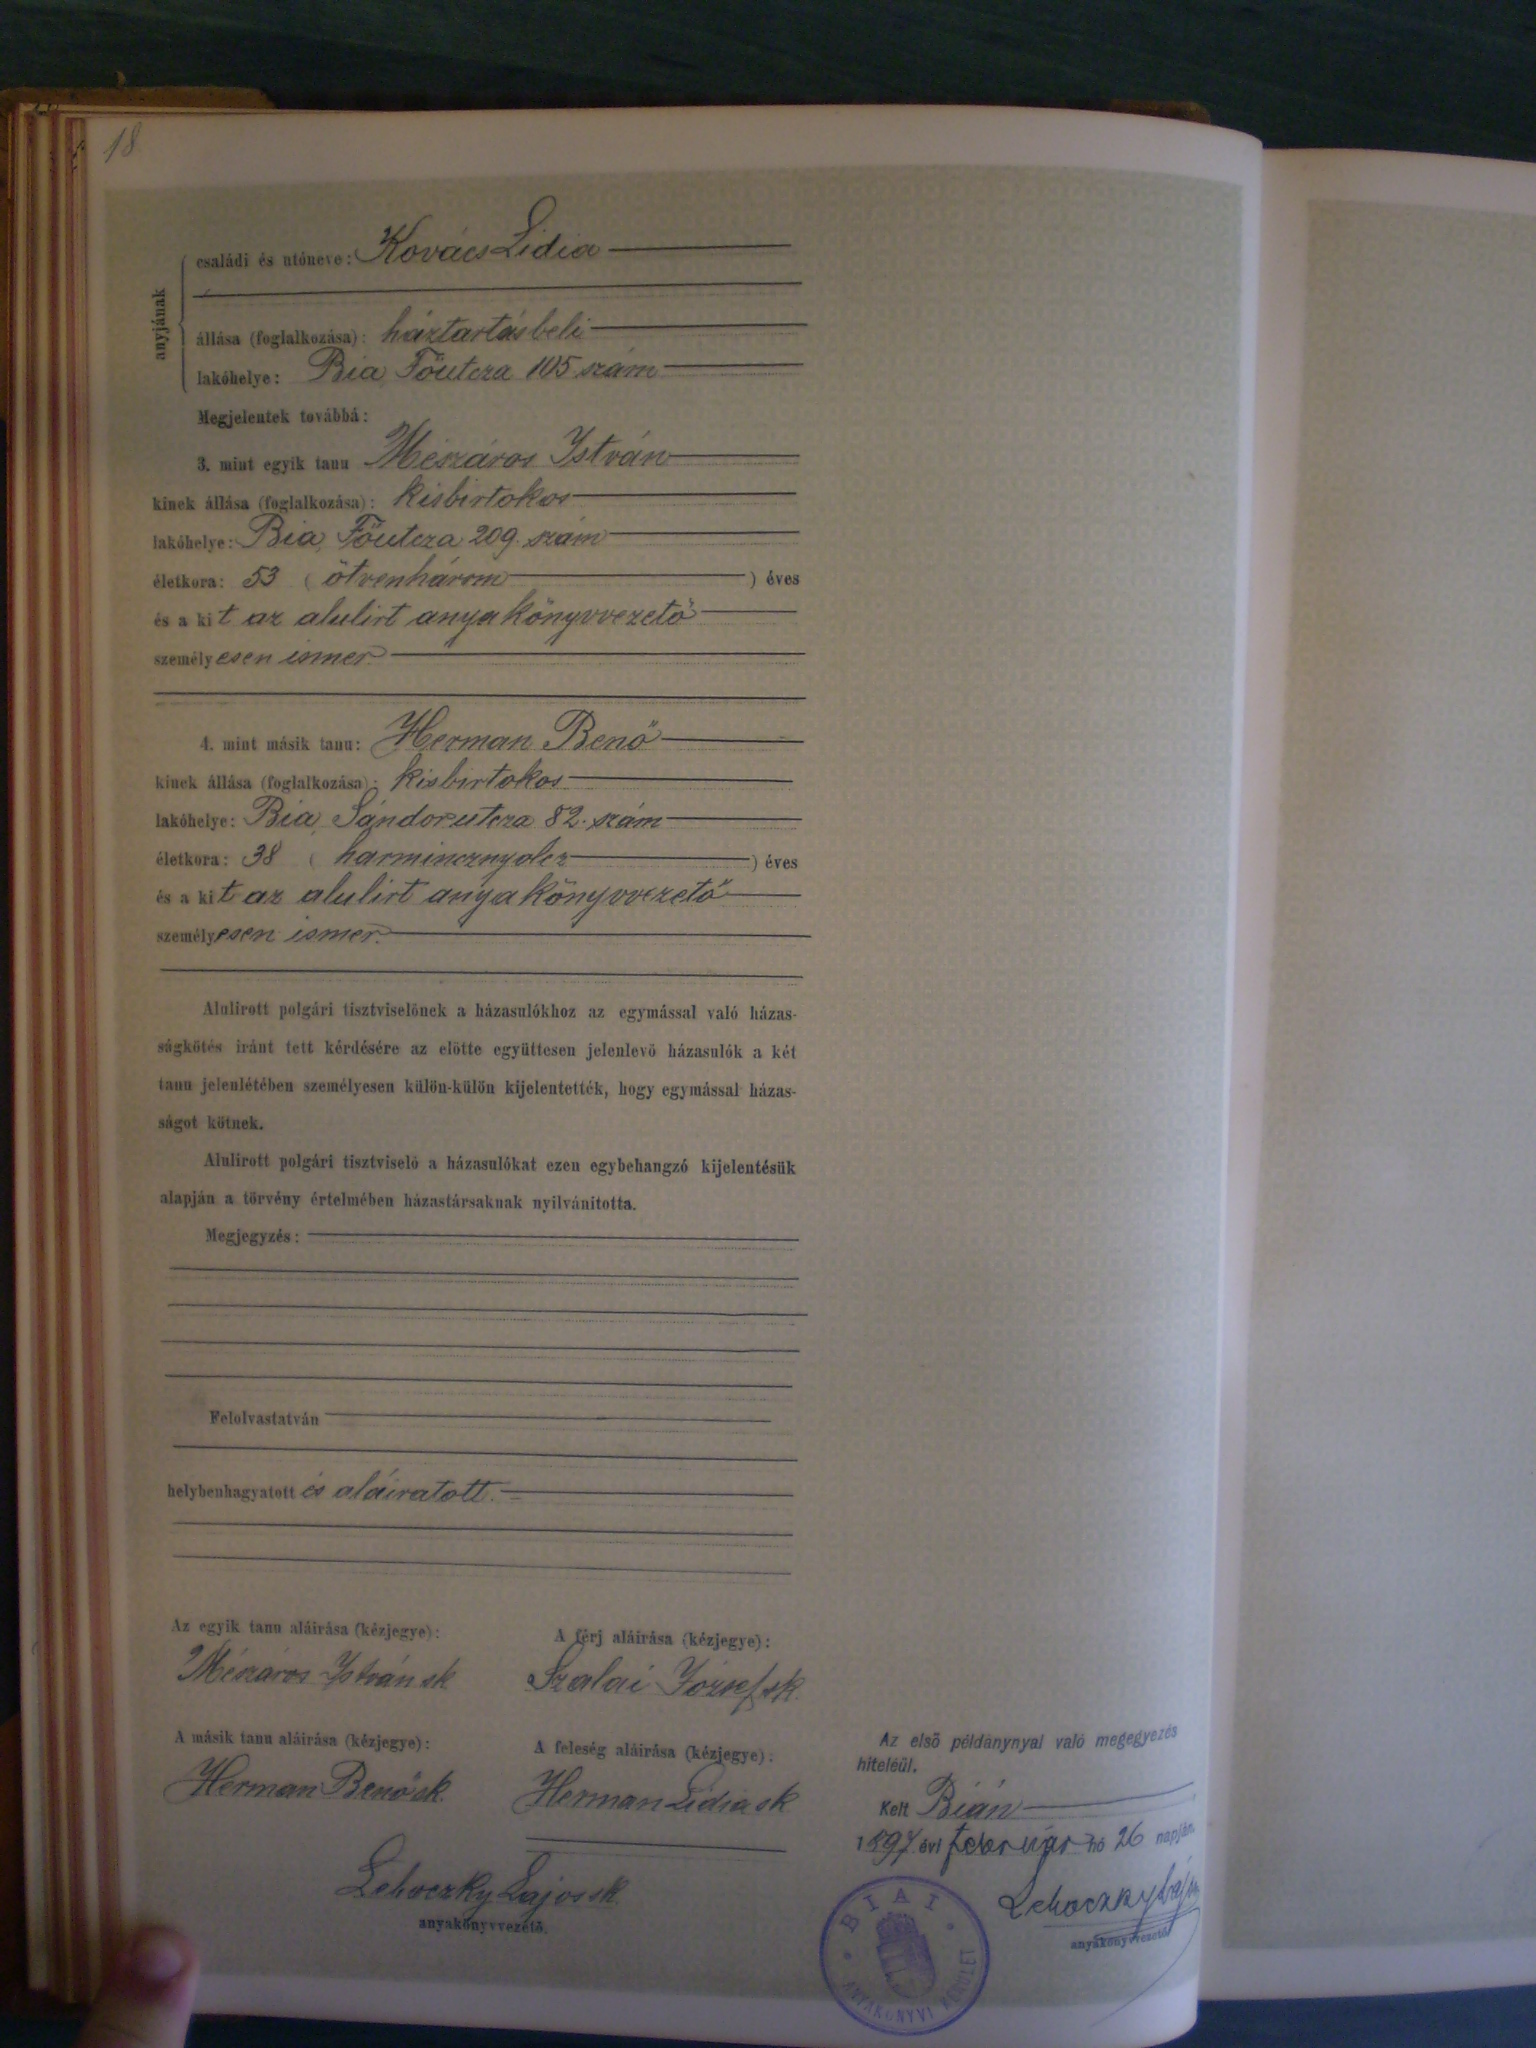 18
anyjának
családi és utóneve: Kovács Lidia
állása (foglalkozása): háztartásbeli
lakóhelye: Bia, Főutcza 105 szám
Megjelentek továbbá:
3. mint egyik tanu Mészáros István
kinek állása (foglalkozása): kisbirtokos
lakóhelye: Bia, Főutcza 209. szám
életkora: 53 (ötvenhárom) éves
és a kit az alulirt anyakönyvvezető
személyesen ismer.
4. mint másik tanu: Herman Benő
kinek állása (foglalkozása): kisbirtokos
lakóhelye: Bia, Sándor utcza 82. szám
életkora: 38 (harmincznyolcz) éves
és a kit az alulirt anyakönyvvezető
személyesen ismer.
Alulirott polgári tisztviselőnek a házasulókhoz az egymással való házas-
ságkötés iránt tett kérdésére az előtte együttesen jelenlevő házasulók a két
tanu jelenlétében személyesen külön-külön kijelentették, hogy egymással házas-
ságot kötnek.
Alulirott polgári tisztviselő a házasulókat ezen egybehangzó kijelentésük
alapján a törvény értelmében házastársaknak nyilvánitotta.
Megjegyzés:
Felolvastatván
helybenhagyatott és aláiratott.
Az egyik tanu aláirása (kézjegye): A férj aláirása (kézjegye):
Mészáros István sk Szalai József sk.
A másik tanu aláirása (kézjegye): A feleség aláirása (kézjegye):
Herman Benő sk. Herman Lidia sk
Lehoczky Lajos sk.
anyakönyvvezető.
Az első példánynyal való megegyezés
hiteléül.
Kelt Bián
1897. évi február hó 26 napján.
Lehoczky Lajos
anyakönyvvezető
BIAI
ANYAKÖNYVI KERÜLET